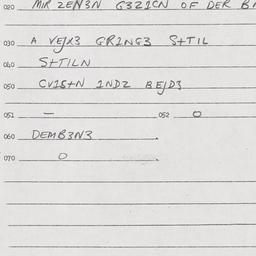 020 MIR ZEN3N G3Z2CN OF DER
030 A VEJX3 GR1NG3 S+TIL
040 S+TILN
050 CV1S+N 1ND2 BEJD3
051 — 052 O
060 DEMB3N3
070 O